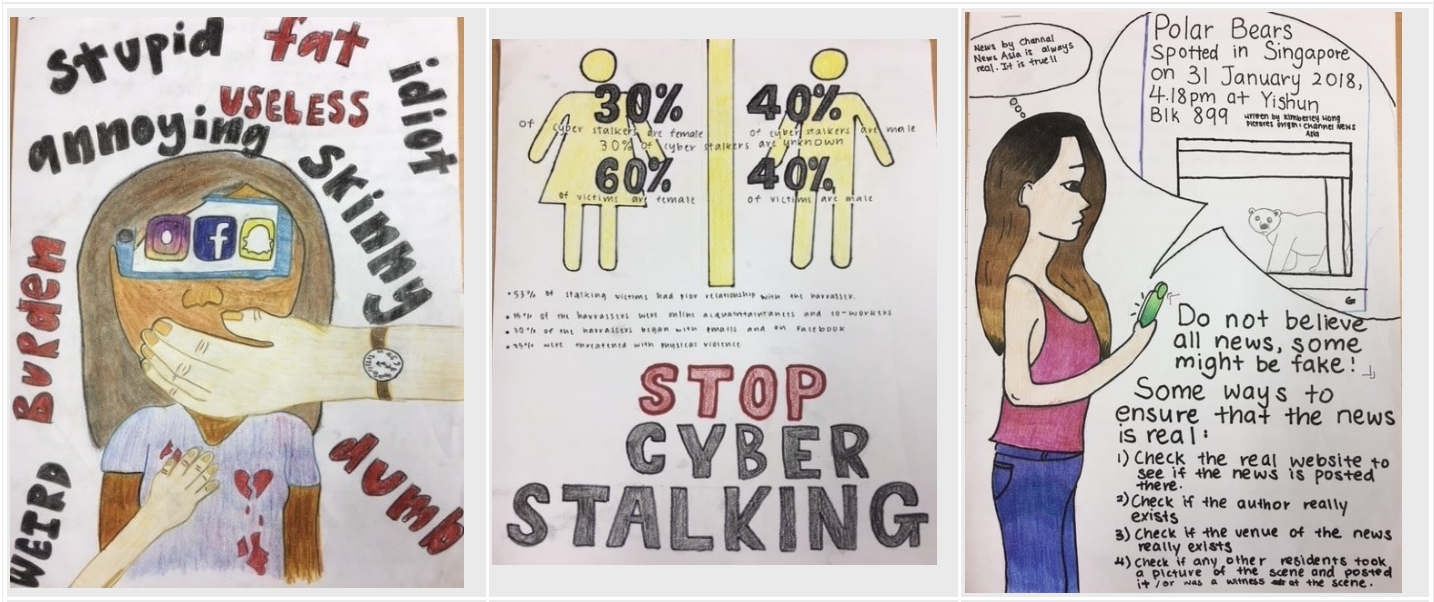 stupid
fat
idiot
USELESS
annoying
Skinny
BURden
WEIRD
dumb
f
30%
of cyber stalkers are female
40%
of cyber stalkers are male
30% of cyber stalkers are unknown
60%
of victims are female
40%
of victims are male
• 53% of stalking victims had prior relationship with the harrasser.
of the harrassers were online acquaintaintances and co-workers
of the harrassers began with emails and on Facebook
were threatened with physical violence
STOP
CYBER
STALKING
News by Channel
News Asia is always
real. It is true!!
Polar Bears
Spotted in Singapore
on 31 January 2018,
4.18pm at Yishun
Blk 899
written by Kimberley Hong
Pictures origin: Channel News
Asia
Do not believe
all news, some
might be fake!
Some ways to
ensure that the news
is real:
1) Check the real website to
see if the news is posted
there.
2) Check if the author really
exists
3) Check if the venue of the news
really exists
4) Check if any other residents took
a picture of the scene and posted
it / or was a witness at the scene.